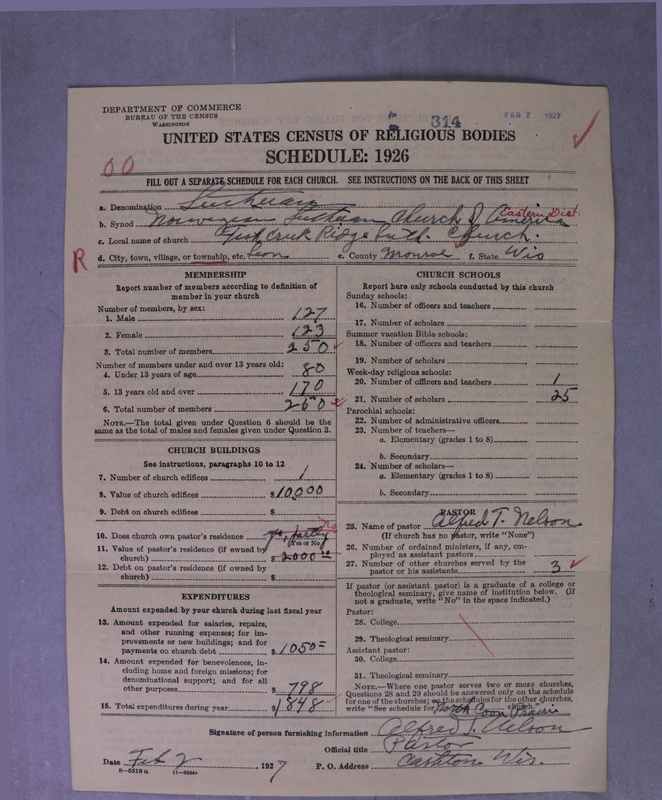 DEPARTMENT OF COMMERCE
BUREAU OF THE CENSUS
WASHINGTON
314
FEB 7 1927
UNITED STATES CENSUS OF RELIGIOUS BODIES
SCHEDULE: 1926
00
FILL OUT A SEPARATE SCHEDULE FOR EACH CHURCH. SEE INSTRUCTIONS ON THE BACK OF THIS SHEET
a. Denomination Lutheran
b. Synod Norwegian Lutheran Church of America Eastern Dist.
c. Local name of church Ridge Luth. Church.
R d. City, town, village, or township, etc. Leon e. County Monroe f. State Wis
MEMBERSHIP
Report number of members according to definition of
member in your church
Number of members, by sex:
1. Male 127
2. Female 123
3. Total number of members 250
Number of members under and over 13 years old:
4. Under 13 years of age 80
5. 13 years old and over 170
6. Total number of members 250
NOTE.—The total given under Question 6 should be the
same as the total of males and females given under Question 3.
CHURCH BUILDINGS
See instructions, paragraphs 10 to 12
7. Number of church edifices 1
8. Value of church edifices $10,000
9. Debt on church edifices $
10. Does church own pastor's residence Yes, partly No
(Yes or No)
11. Value of pastor's residence (if owned by
church) $2000
12. Debt on pastor's residence (if owned by
church) $
EXPENDITURES
Amount expended by your church during last fiscal year
13. Amount expended for salaries, repairs,
and other running expenses; for im-
provements or new buildings; and for
payments on church debt $1050=
14. Amount expended for benevolences, in-
cluding home and foreign missions; for
denominational support; and for all
other purposes 798
15. Total expenditures during year $1848
CHURCH SCHOOLS
Report here only schools conducted by this church
Sunday schools:
16. Number of officers and teachers
17. Number of scholars
Summer vacation Bible schools:
18. Number of officers and teachers
19. Number of scholars
Week-day religious schools:
20. Number of officers and teachers 1
21. Number of scholars 25
Parochial schools:
22. Number of administrative officers
23. Number of teachers—
a. Elementary (grades 1 to 8)
b. Secondary
24. Number of scholars—
a. Elementary (grades 1 to 8)
b. Secondary
PASTOR
25. Name of pastor Alfred T. Nelson
(If church has no pastor, write "None")
26. Number of ordained ministers, if any, em-
ployed as assistant pastors
27. Number of other churches served by the
pastor or his assistants 3
If pastor (or assistant pastor) is a graduate of a college or
theological seminary, give name of institution below. (If
not a graduate, write "No" in the space indicated.)
Pastor:
28. College
29. Theological seminary
Assistant pastor:
30. College
31. Theological seminary
NOTE.—Where one pastor serves two or more churches,
Questions 28 and 29 should be answered only on the schedule
for one of the churches; on the schedules for the other churches,
write "See schedule for North Coon Prairie church."
Signature of person furnishing information Alfred T. Nelson
Official title Pastor
Date Feb 2, 1927 P. O. Address Cashton Wis.
8—5518a 11—9034